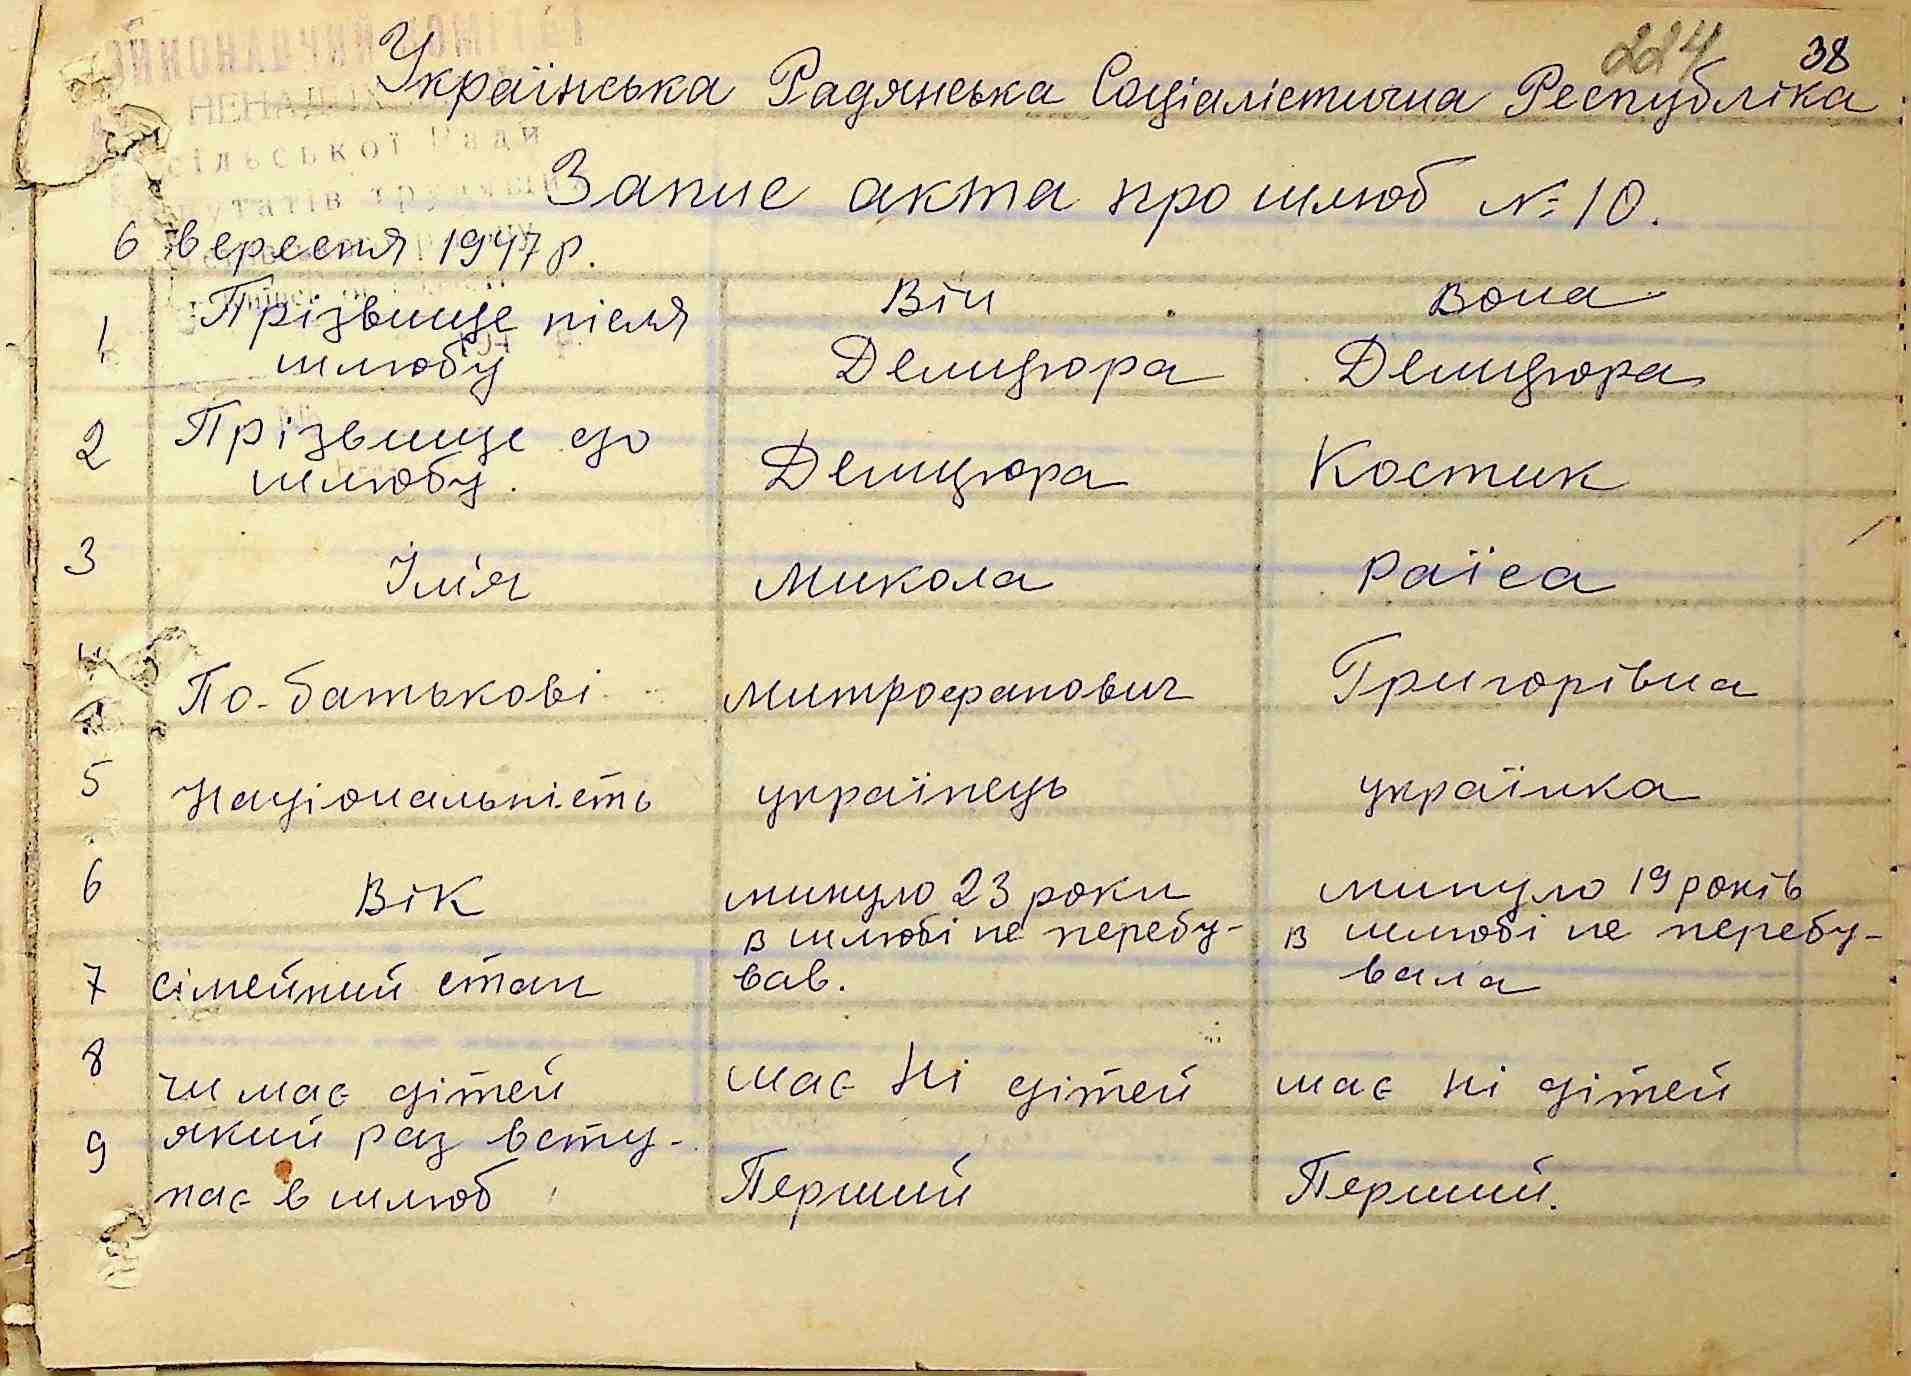 224 38
Українська Радянська Соціалістична Республіка
сільської Ради
Запис акта про шлюб № 10.
6 вересня 1947 р.
Він Вона
1 Прізвище після шлюбу Демидюра Демидюра
2 Прізвище до шлюбу. Демидюра Костик
3 Ім'я Микола Раїса
4 По-батькові Митрофанович Григорівна
5 Національність українець українка
6 Вік минуло 23 роки минуло 19 років
7 сімейний стан в шлюбі не перебу-вав. в шлюбі не перебу-вала
8 чи має дітей має ні дітей має ні дітей
9 який раз всту-пає в шлюб Перший Перший.